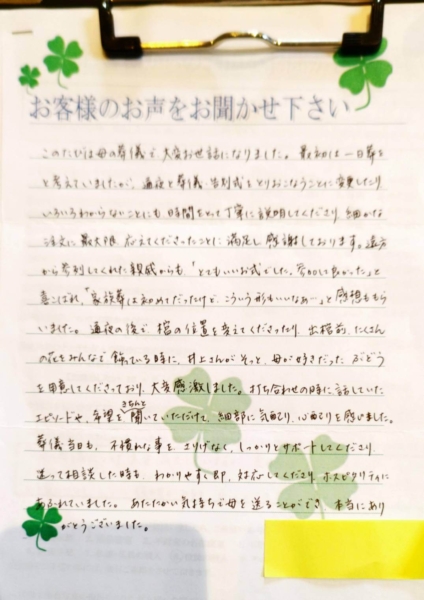 お客様のお声をお聞かせ下さい
このたびは母の葬儀で、大変お世話になりました。最初は一日葬を
と考えていましたが、通夜と葬儀・告別式をとりおこなうことに変更したり
いろいろわからないことにも時間をとって丁寧に説明してくださり、細かな
注文に最大限応えてくださったことに満足し感謝しております。遠方
から参列してくれた親戚からも「とてもいいお式でした。参加して良かった」と
喜こばれ、「家族葬は初めてだったけど、こういう形もいいなあー」と感想ももら
いました。通夜の後で棺の位置を変えてくださったり、出棺前、たくさん
の花をみんなで飾っている時に、井上さんがそっと、母が好きだったぶどう
を用意してくださっており、大変感激しました。打ち合わせの時に話していた
エピソードや、希望をきちんと聞いていただけて、細部に気配り、心配りを感じました。
葬儀当日も、不慣れな事を、さりげなく、しっかりとサポートしてくださり
迷って相談した時も、わかりやすく即、対応してくださり、ホスピタリティに
あふれていました。あたたかい気持ちで母を送ることができ、本当にあり
がとうございました。